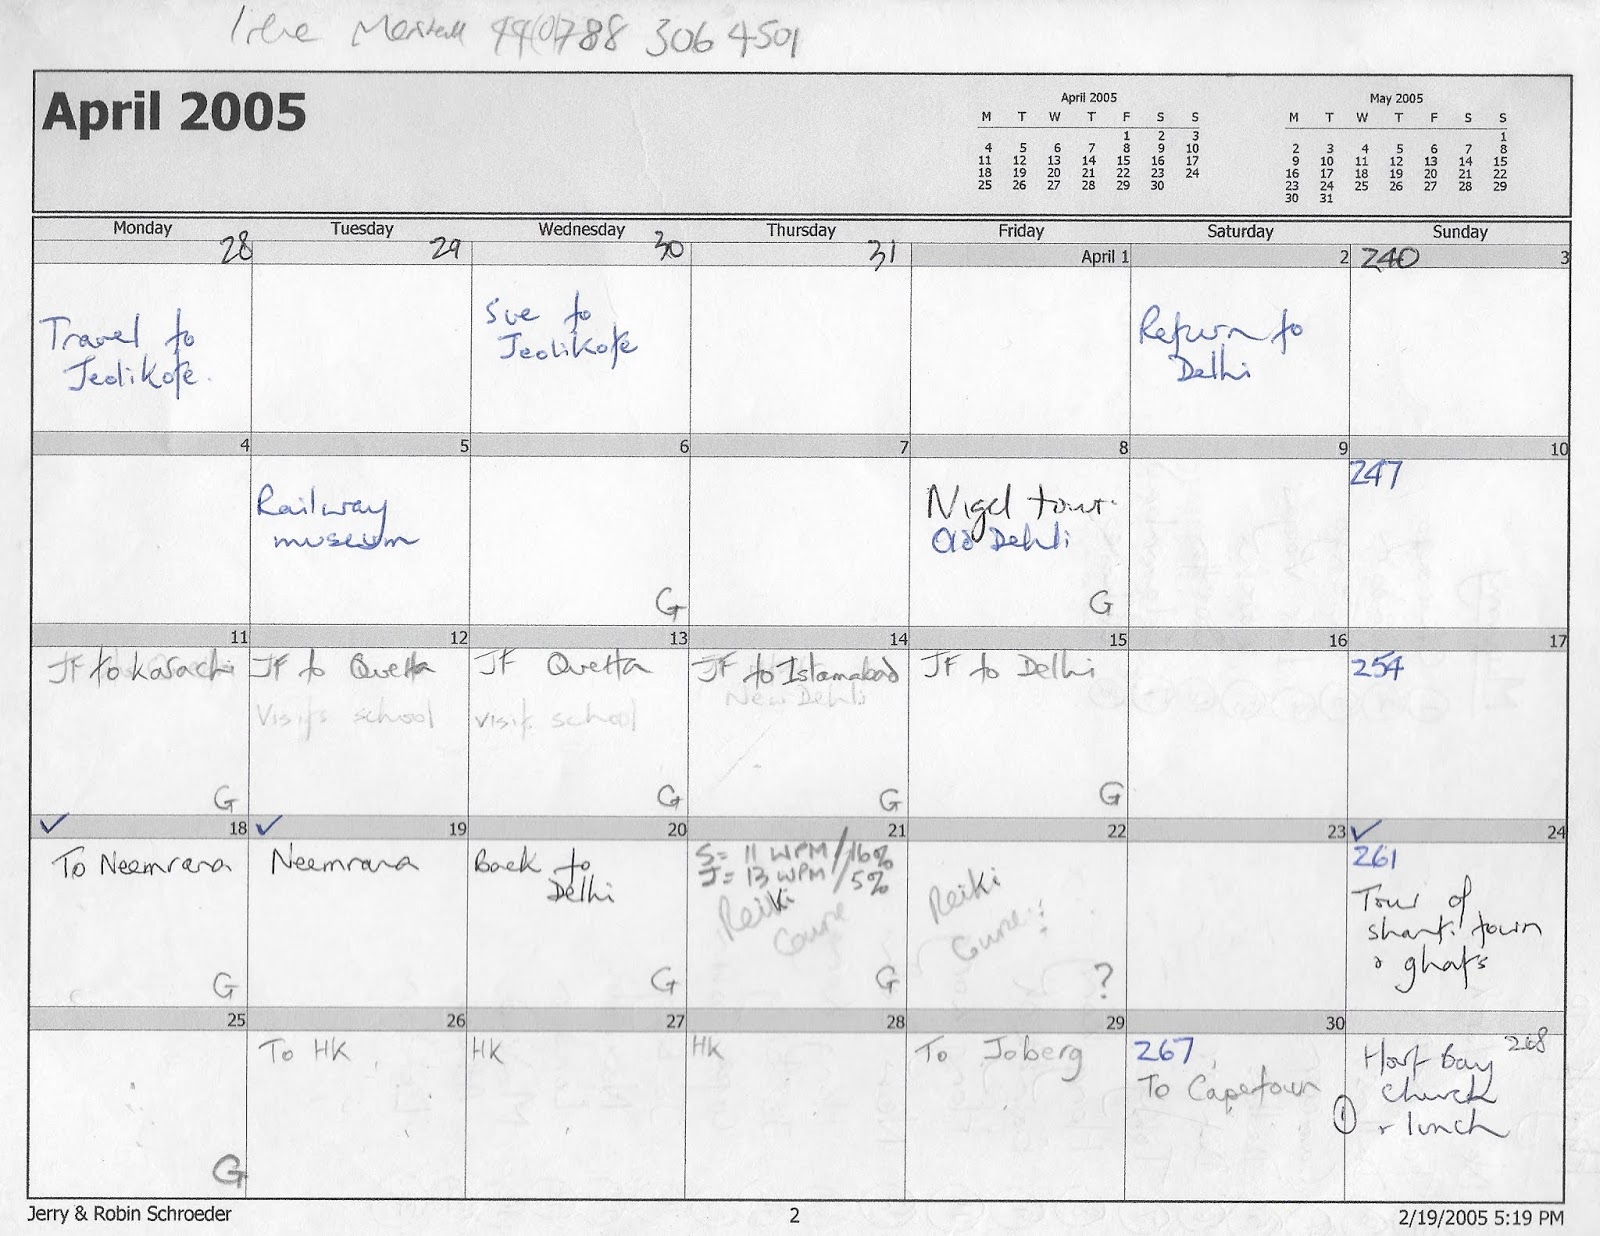 44(0)788 306 4501
April 2005
April 2005
M T W T F S S
1 2 3
4 5 6 7 8 9 10
11 12 13 14 15 16 17
18 19 20 21 22 23 24
25 26 27 28 29 30
May 2005
M T W T F S S
1
2 3 4 5 6 7 8
9 10 11 12 13 14 15
16 17 18 19 20 21 22
23 24 25 26 27 28 29
30 31
Monday Tuesday Wednesday Thursday Friday Saturday Sunday
28 29 30 31 April 1 2 240 3
Travel to
Jeolikote.
Sue to
Jeolikote
Return to
Delhi
4 5 6 7 8 9 10
Railway
museum
G
Nigel tour.
Old Dehli
G
247
11 12 13 14 15 16 17
JF to Karachi
G
JF to Quetta
Visits school
JF Quetta
visits school
G
JF to Islamabad
New Dehli
G
JF to Delhi
G
254
✓ 18 ✓ 19 20 21 22 23 ✓ 24
To Neemrana
G
Neemrana
Back to
Delhi
G
S = 11 WPM / 16%
J = 13 WPM / 5%
Reiki
Course
G
Reiki
Course
?
261
Tour of
shanti town
& ghats
25 26 27 28 29 30
G
To HK
HK
HK
To Joberg
267
To Capetown
268
Hout Bay
church
+ lunch
Jerry & Robin Schroeder 2 2/19/2005 5:19 PM